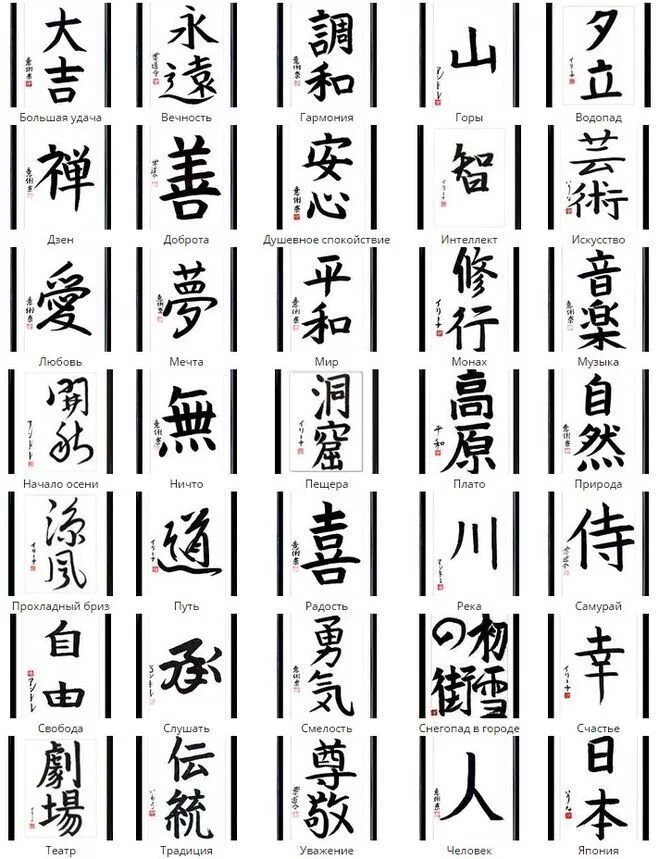 大吉
Большая удача
永遠
Вечность
調和
Гармония
山
アンドレ
Горы
夕立
イリーナ
Водопад
禅
Дзен
善
Доброта
安心
Душевное спокойствие
智
イリーナ
Интеллект
芸術
Искусство
愛
Любовь
夢
Мечта
平和
Мир
修行
イリーナ
Монах
音楽
Музыка
開秋
アンドレ
Начало осени
無
Ничто
洞窟
イリーナ
Пещера
高原
平和
Плато
自然
Природа
涼風
イリーナ
Прохладный бриз
道
イリーナ
Путь
喜
Радость
川
アンドレ
Река
侍
Самурай
自由
アンドレ
Свобода
承
Слушать
勇気
Смелость
初雪
の街
Снегопад в городе
幸
イリーナ
Счастье
劇場
イリーナ
Театр
伝統
Традиция
尊敬
Уважение
人
Человек
日本
Япония